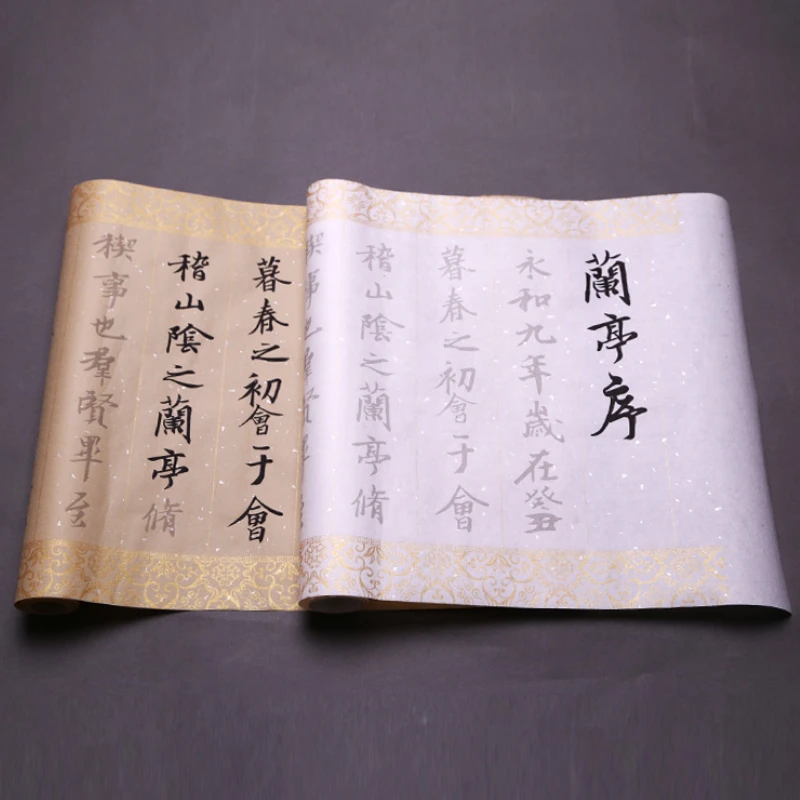 蘭亭序
永和九年歲在癸丑
暮春之初會于會
稽山陰之蘭亭脩
事也羣賢
暮春之初會于會
稽山陰之蘭亭脩
禊事也羣賢畢至